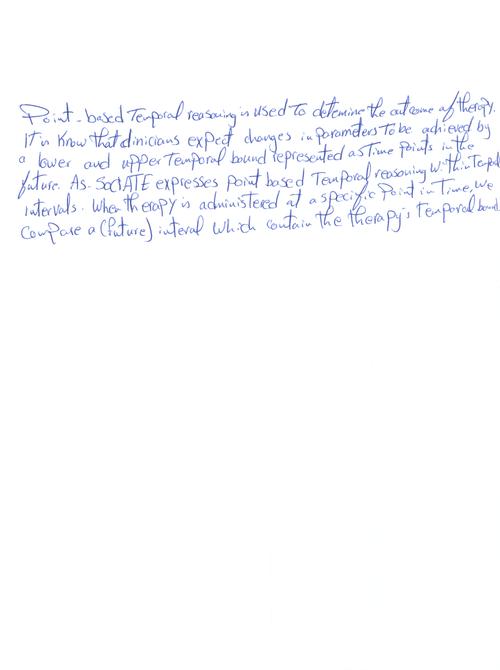 Point-based Temporal reasoning is used To detemine the outcome of therapy.
IT is Know that clinicians expect changes in parameters To be achieved by
a lower and upper Temporal bound represented as Time points in the
future. As SocIATE expresses point based Temporal reasoning within Tempol
intervals. When therapy is administered at a specific Point in Time, we
Compare a (future) interal which contain the therapy's Temporal bound